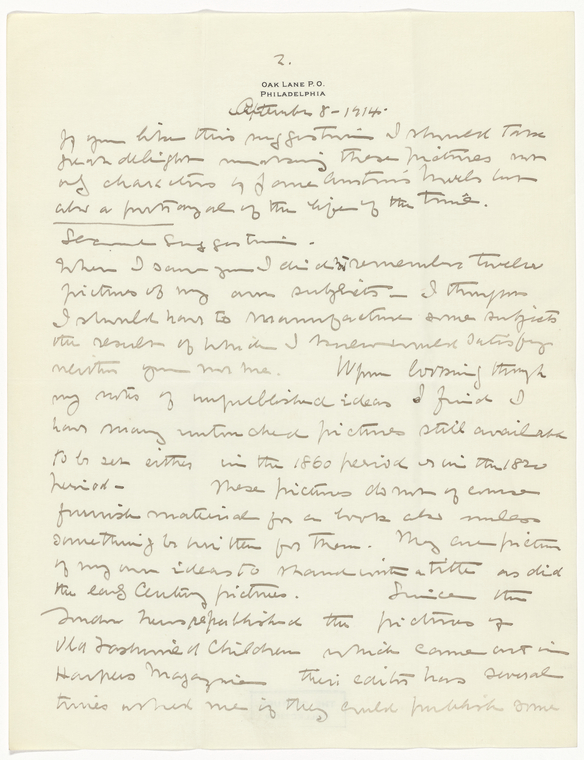 2.
OAK LANE P.O.
PHILADELPHIA
September 8 - 1914.
If you like this suggestion I should take
great delight making these pictures not
only characters of Jane Austin's novels but
also a portrayal of the life of the time.
Second Suggestion.
When I saw you I did not remember twelve
pictures of my own subjects - I thought
I should have to manufacture some subjects
the result of which I knew would satisfy
neither you nor me. Upon looking through
my notes of unpublished ideas I find I
have many untouched pictures still available
to be set either in the 1860 period or in the 1820
period - These pictures do not of course
furnish material for a book also unless
something be written for them. They are pictures
of my own ideas to stand with a title as did
the early Century pictures. Since the
London News republished the pictures of
Old Fashioned Children which came out in
Harpers Magazine their editor has several
times asked me if they could publish some